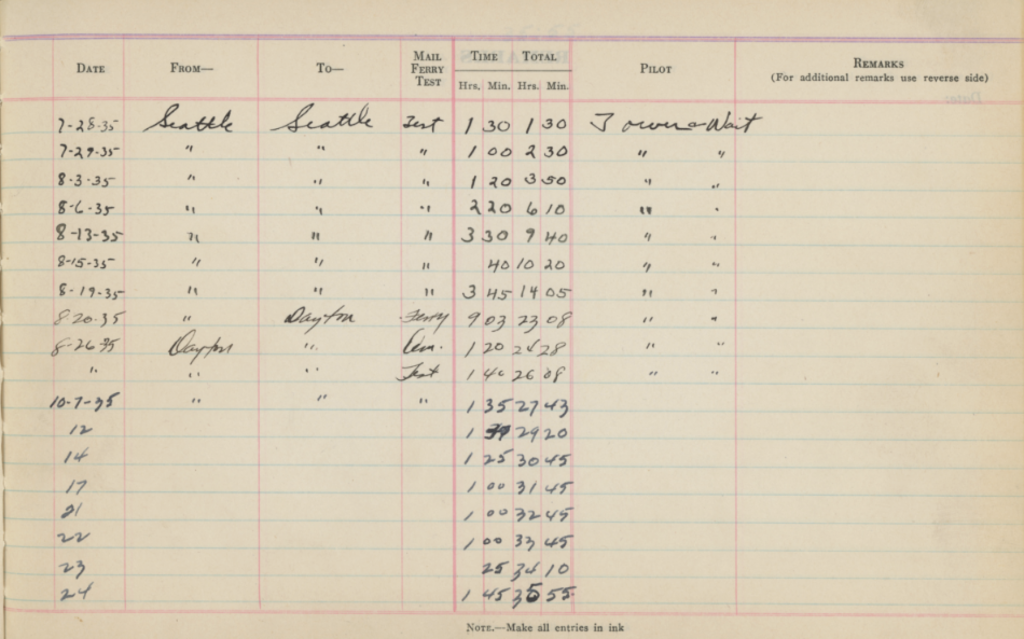 DATE FROM— TO— MAIL FERRY TEST TIME Hrs. Min. TOTAL Hrs. Min. PILOT REMARKS (For additional remarks use reverse side)
7-28-35 Seattle Seattle Test 1 30 1 30 Tower & Wait
7-29-35 " " " 1 00 2 30 " "
8-3-35 " " " 1 20 3 50 " "
8-6-35 " " " 2 20 6 10 " "
8-13-35 " " " 3 30 9 40 " "
8-15-35 " " " 40 10 20 " "
8-19-35 " " " 3 45 14 05 " "
8-20-35 " Dayton Ferry 9 03 23 08 " "
8-26-35 Dayton " 1 20 24 28 " "
" " " Test 1 40 26 08 " "
10-7-35 " " " 1 35 27 43
12 1 29 20
14 1 25 30 45
17 1 00 31 45
21 1 00 32 45
22 1 00 33 45
23 25 34 10
24 1 45 35 55
NOTE.—Make all entries in ink